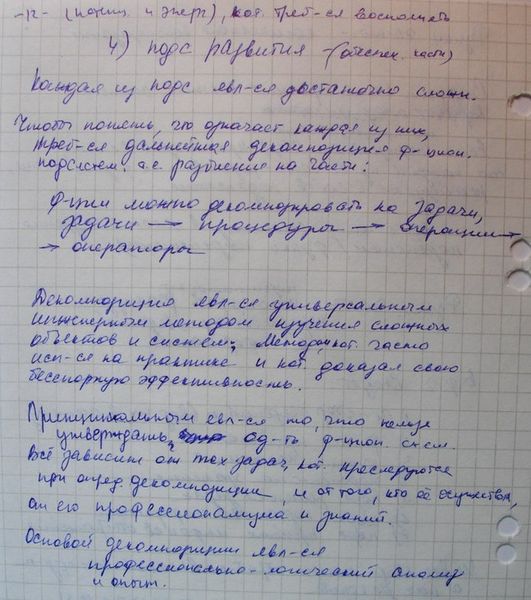 -12- (потенц. и энерг), кот. треб-ся восполнять
4) подс развития - (обеспеч. части)
Каждая из подс явл-ся достаточно сложн.
Чтобы понять, что означает каждая из них,
треб-ся дальнейшая декомпозиция ф-цион.
подсистем. т.е. разбиения на части:
Ф-ции можно декомпозировать на задачи,
задачи → процедуры → операции →
→ операторы
Декомпозиция явл-ся универсальным
инженерным методом изучения сложных
объектов и систем; Метод, кот. часто
исп-ся на практике и кот. доказал свою
бесспорную эффективность.
Принципиальным явл-ся то, что нельзя
утверждать, од-ть ф-цион. сист.
Всё зависит от тех задач, кот. преследуются
при опред. декомпозиции, и от того, кто её осуществл,
от его профессионализма и знаний.
Основой декомпозиции явл-ся
профессионально-логический анализ
и опыт.